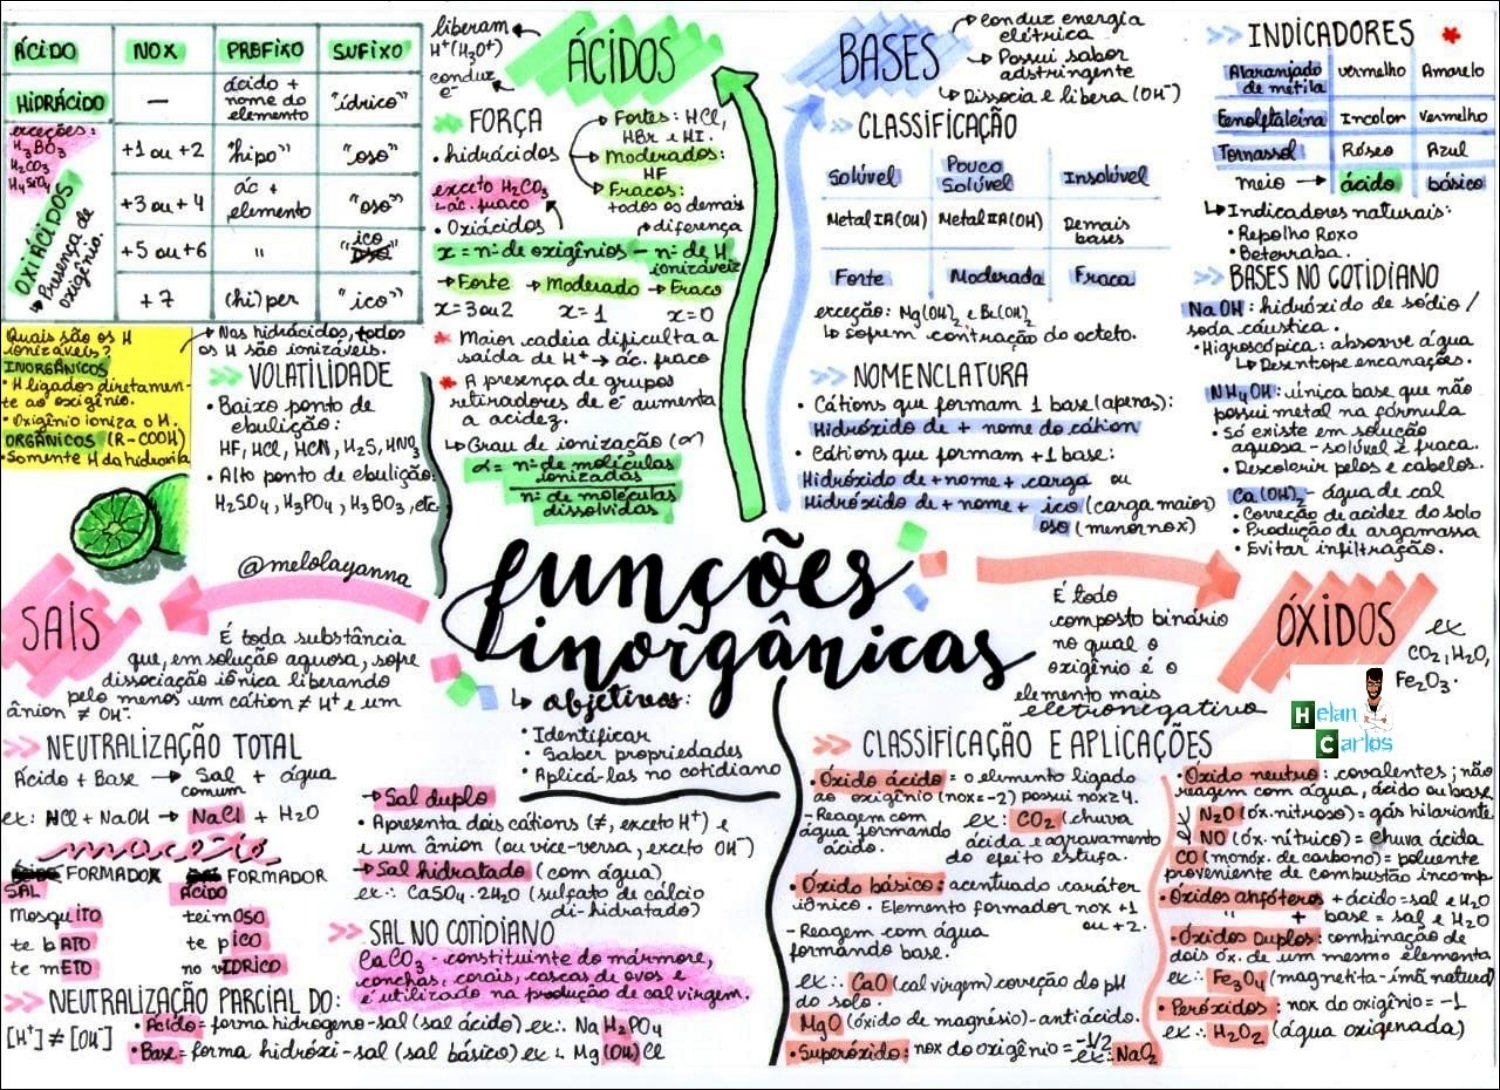 ÁCIDO NOX PREFIXO SUFIXO
HIDRÁCIDO — ácido + nome do elemento "ídrico"
exceções:
H3BO3
H2CO3
OXIÁCIDOS
↳ Presença de oxigênio.
+1 ou +2 "hipo" "oso"
+3 ou +4 ác + elemento "oso"
+5 ou +6 " "ico"
+7 (hi)per "ico"
Quais são os H
ionizáveis?
INORGÂNICOS
• H ligados diretamen-
te ao oxigênio.
• Oxigênio ioniza o H.
ORGÂNICOS (R-COOH)
• Somente H da hidroxila
Nos hidrácidos, todos
os H são ionizáveis.
VOLATILIDADE
• Baixo ponto de
ebulição:
HF, HCl, HCN, H2S, HNO3
• Alto ponto de ebulição:
H2SO4, H3PO4, H3BO3, etc.
@melolayanna
liberam
H+(H3O+)
conduz
e-
ÁCIDOS
FORÇA
• hidrácidos
Fortes: HCl,
HBr e HI.
Moderados:
HF
Fracos:
todos os demais
exceto H2CO3
↳ ác. fraco
• Oxiácidos
diferença
x = nº de oxigênios - nº de H
ionizáveis
→ Forte → Moderado → Fraco
x=3 ou 2 x=1 x=0
* Maior cadeia dificulta a
saída de H+ → ác. fraco
* A presença de grupos
retiradores de e- aumenta
a acidez.
↳ Grau de ionização (α)
α = nº de moléculas
ionizadas
nº de moléculas
dissolvidas
BASES
Conduz energia
elétrica
Possui sabor
adstringente
Dissocia e libera (OH-)
CLASSIFICAÇÃO
Solúvel Pouco Solúvel Insolúvel
Metal IA(OH) Metal IIA(OH) Demais bases
Forte Moderada Fraca
exceção: Mg(OH)2 e Be(OH)2
↳ sofrem contração do octeto.
NOMENCLATURA
• Cátions que formam 1 base (apenas):
Hidróxido de + nome do cátion
• Cátions que formam +1 base:
Hidróxido de + nome + carga ou
Hidróxido de + nome + ico (carga maior)
oso (menor nox)
INDICADORES *
Alaranjado de metila vermelho Amarelo
Fenolftaleína Incolor Vermelho
Tornassol Róseo Azul
meio → ácido básico
↳ Indicadores naturais:
• Repolho Roxo
• Beterraba.
BASES NO COTIDIANO
NaOH: hidróxido de sódio /
soda cáustica.
• Higroscópica: absorve água
↳ Desentope encanações.
NH4OH: única base que não
possui metal na fórmula
• Só existe em solução
aquosa - solúvel e fraca.
• Descolorir pelos e cabelos.
Ca(OH)2 - água de cal
• Correção de acidez do solo
• Produção de argamassa
• Evitar infiltração.
funções
inorgânicas
↳ objetivos:
• Identificar
• Saber propriedades
• Aplicá-las no cotidiano
SAIS
É toda substância
que, em solução aquosa, sofre
dissociação iônica liberando
pelo menos um cátion ≠ H+ e um
ânion ≠ OH-.
NEUTRALIZAÇÃO TOTAL
Ácido + Base → Sal + água
comum
ex: HCl + NaOH → NaCl + H2O
macete
FORMADOR FORMADOR
SAL ÁCIDO
Mosquito teimoso
te bato te pico
te meto no vidrico
NEUTRALIZAÇÃO PARCIAL DO:
[H+] ≠ [OH-]
• Ácido = forma hidrogeno-sal (sal ácido) ex: NaH2PO4
• Base = forma hidróxi-sal (sal básico) ex: Mg(OH)Cl
→ Sal duplo
• Apresenta dois cátions (≠, exceto H+) e
e um ânion (ou vice-versa, exceto OH-)
→ Sal hidratado (com água)
ex: CaSO4 · 2H2O (sulfato de cálcio
di-hidratado)
SAL NO COTIDIANO
CaCO3 - constituinte do mármore,
conchas, corais, cascas de ovos e
é utilizado na produção de cal virgem.
ÓXIDOS
É todo
composto binário
no qual o
oxigênio é o
elemento mais
eletronegativo
ex
CO2, H2O,
Fe2O3.
Helan
Carlos
CLASSIFICAÇÃO E APLICAÇÕES
• Óxido ácido = o elemento ligado
ao oxigênio (nox=-2) possui nox≥4.
- Reagem com
água formando
ácido.
ex: CO2 (chuva
ácida e agravamento
do efeito estufa.
• Óxido básico: acentuado caráter
iônico. Elemento formador nox +1
ou +2.
- Reagem com água
formando base.
ex: CaO (cal virgem) correção do pH
do solo.
MgO (óxido de magnésio) - antiácido.
• Superóxido: nox do oxigênio = -1/2
ex: NaO2
• Óxido neutro: covalentes; não
reagem com água, ácido ou base
ex N2O (óx. nitroso) = gás hilariante
NO (óx. nítrico) = chuva ácida
CO (monóx. de carbono) = poluente
proveniente de combustão incomp
• Óxidos anfóteros + ácido = sal e H2O
" + base = sal e H2O
• Óxidos Duplos: combinação de
dois óx. de um mesmo elemento
ex: Fe3O4 (magnetita - ímã natural)
• Peróxidos: nox do oxigênio = -1
ex: H2O2 (água oxigenada)